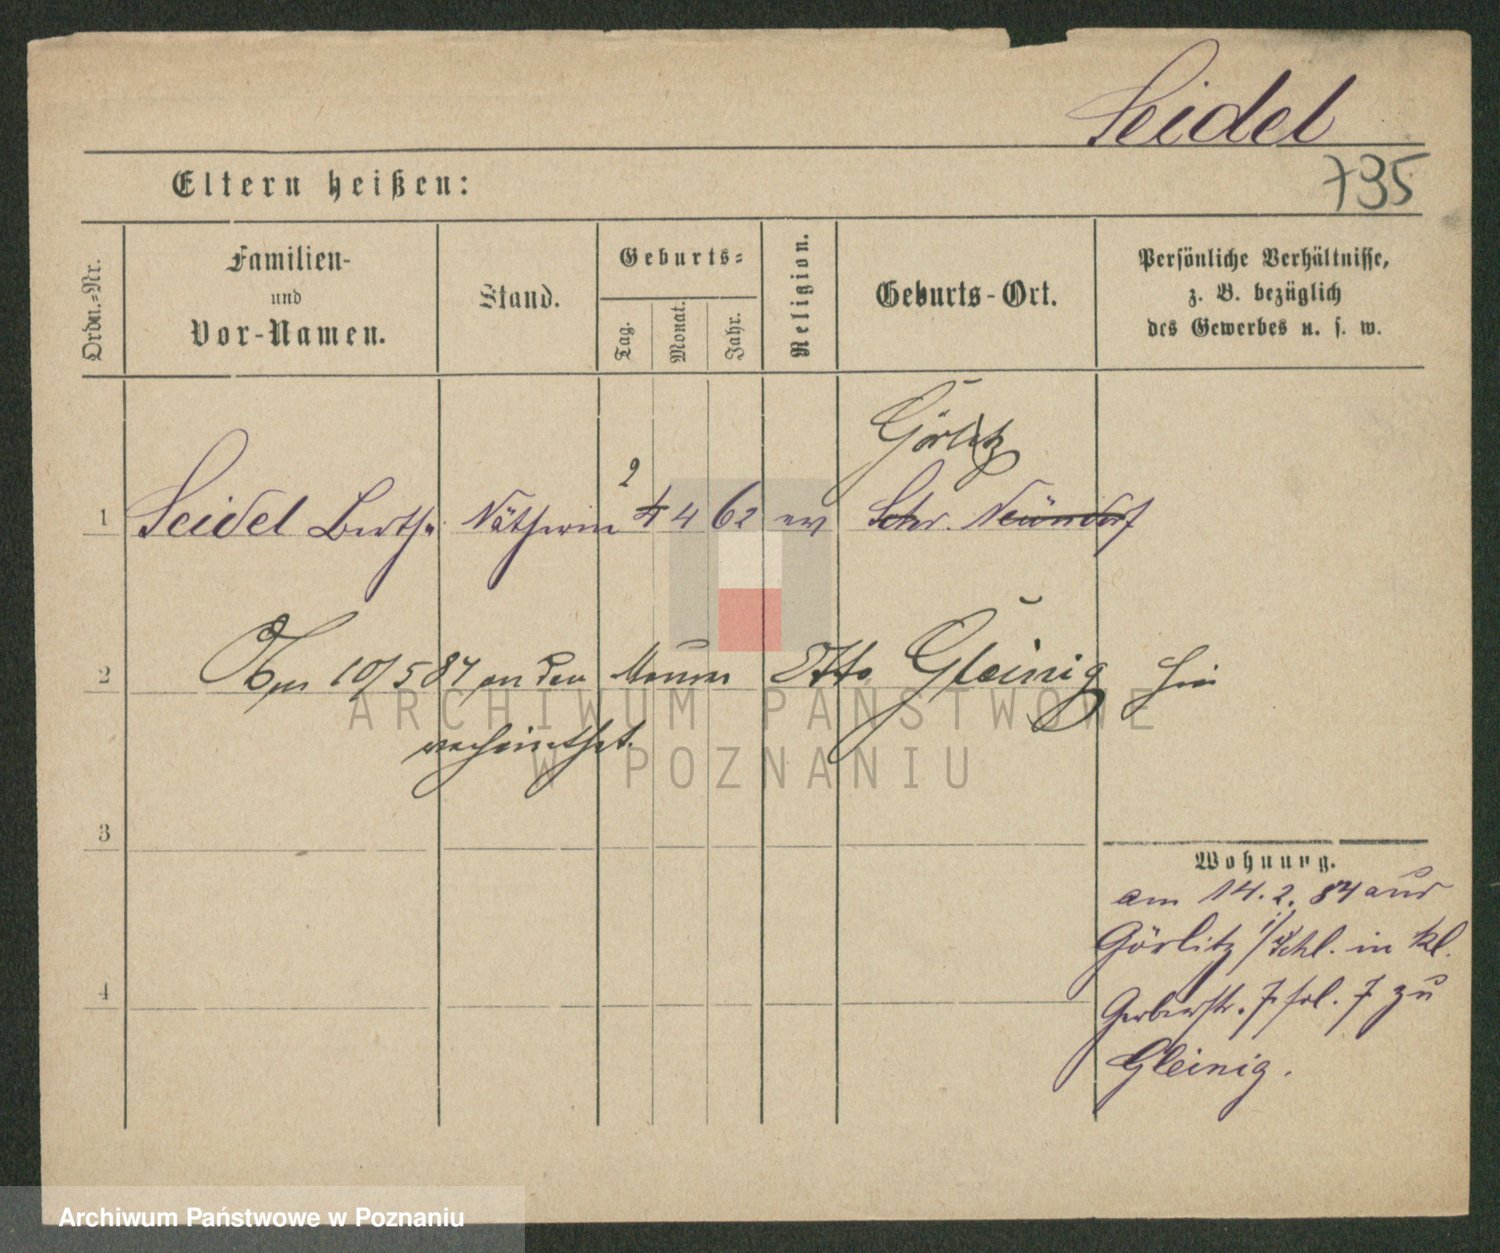 Seidel
735
Eltern heißen:
Ordn.=Nr.
Familien-
und
Vor-Namen.
Stand.
Geburts=
Tag.
Monat.
Jahr.
Religion.
Geburts-Ort.
Persönliche Verhältnisse,
z. B. bezüglich
des Gewerbes u. s. w.
Görlitz
1 Seidel Bertha Nätherin 2 4 4 62 ev Schr. Neundorf
2 Am 10/5 84 an den Maurer Otto Gleinig hier
verheirathet.
ARCHIWUM PAŃSTWOWE
W POZNANIU
3
Wohnung.
am 14. 2. 84 aus
Görlitz i/Schl. in kl.
4
Gerberstr. 7 frl. 7 zu
Gleinig.
Archiwum Państwowe w Poznaniu